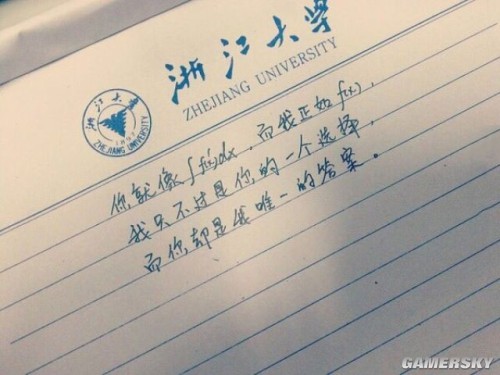 浙江大学
ZHEJIANG UNIVERSITY
浙江大学
1897
ZHEJIANG UNIVERSITY
你就像∫f(x)dx，而我正如f(x)，
我只不过是你的一个选择，
而你却是我唯一的答案。
GAMERSKY